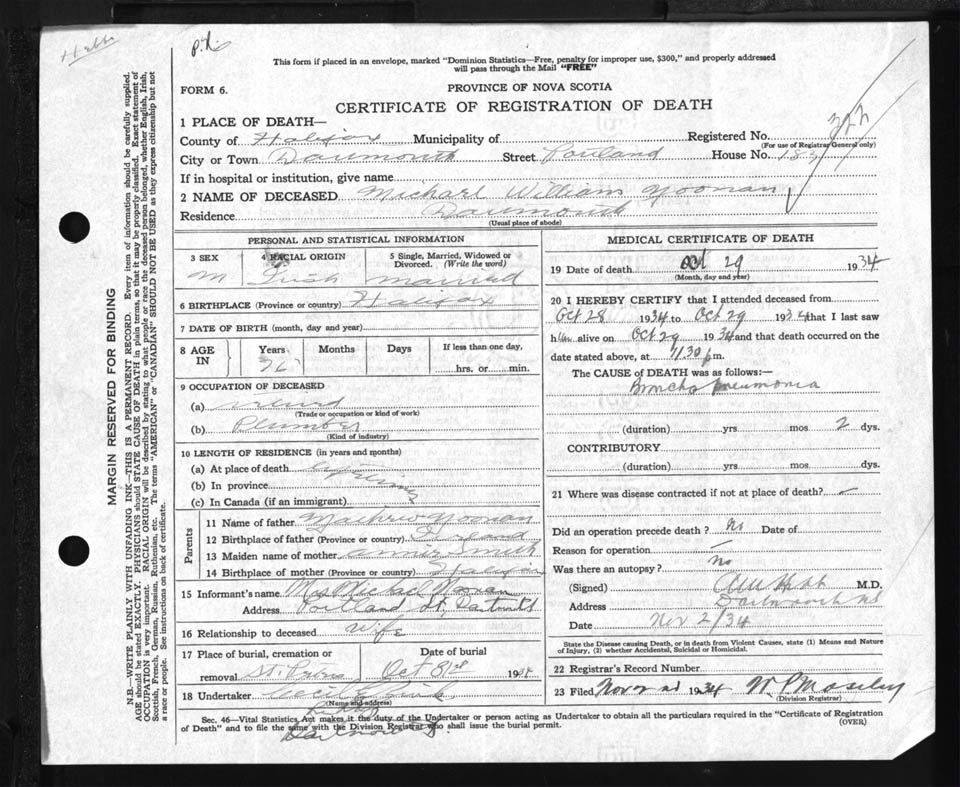 Hebb
This form if placed in an envelope, marked "Dominion Statistics—Free, penalty for improper use, $300," and properly addressed
will pass through the Mail "FREE"
FORM 6.
PROVINCE OF NOVA SCOTIA
CERTIFICATE OF REGISTRATION OF DEATH
1 PLACE OF DEATH—
County of Halifax Municipality of Registered No. 322
(For use of Registrar General only)
City or Town Dartmouth Street Portland House No. 183
If in hospital or institution, give name
2 NAME OF DECEASED Michael William Noonan
Residence Dartmouth
(Usual place of abode)
MARGIN RESERVED FOR BINDING
N.B.—WRITE PLAINLY WITH UNFADING INK—THIS IS A PERMANENT RECORD. Every item of information should be carefully supplied.
AGE should be stated EXACTLY. PHYSICIANS should STATE CAUSE OF DEATH in plain terms, so that it may be properly classified. Exact statement of
OCCUPATION is very important. RACIAL ORIGIN will be described by stating to what people or race the deceased person belonged, whether English, Irish,
Scottish, French, German, Russian, Ruthenian, etc. The terms "AMERICAN" or "CANADIAN" SHOULD NOT BE USED as they express citizenship but not
a race or people. See instructions on back of certificate.
PERSONAL AND STATISTICAL INFORMATION
3 SEX 4 RACIAL ORIGIN 5 Single, Married, Widowed or
Divorced. (Write the word)
M Irish Married
6 BIRTHPLACE (Province or country) Halifax
7 DATE OF BIRTH (month, day and year)
8 AGE IN Years Months Days If less than one day,
76 hrs. or min.
9 OCCUPATION OF DECEASED
(a) retired
(Trade or occupation or kind of work)
(b) Plumber
(Kind of industry)
10 LENGTH OF RESIDENCE (in years and months)
(a) At place of death
(b) In province
(c) In Canada (if an immigrant)
Parents
11 Name of father Mathew Noonan
12 Birthplace of father (Province or country) Ireland
13 Maiden name of mother Annie Smith
14 Birthplace of mother (Province or country) Halifax
15 Informant's name Mrs Michael Noonan
Address Portland St, Dartmouth
16 Relationship to deceased Wife
17 Place of burial, cremation or Date of burial
removal St. Peters Oct 31st 1934
18 Undertaker
(Name and address)
Dartmouth
MEDICAL CERTIFICATE OF DEATH
19 Date of death Oct 29 1934
(Month, day and year)
20 I HEREBY CERTIFY that I attended deceased from
Oct 28 1934 to Oct 29 1934 that I last saw
him alive on Oct 29 1934 and that death occurred on the
date stated above, at 7.30 p.m.
The CAUSE of DEATH was as follows:—
Broncho pneumonia
(duration) yrs. mos. 2 dys.
CONTRIBUTORY
(duration) yrs. mos. dys.
21 Where was disease contracted if not at place of death?
Did an operation precede death? No Date of
Reason for operation
Was there an autopsy? No
(Signed) M.D.
Address Dartmouth NS
Date Nov 2/34
State the Disease causing Death, or in death from Violent Causes, state (1) Means and Nature
of Injury, (2) whether Accidental, Suicidal or Homicidal.
22 Registrar's Record Number
23 Filed Nov 2nd 1934 W. P. Moseley
(Division Registrar)
Sec. 46—Vital Statistics Act makes it the duty of the Undertaker or person acting as Undertaker to obtain all the particulars required in the "Certificate of Registration
of Death" and to file the same with the Division Registrar who shall issue the burial permit. (OVER)